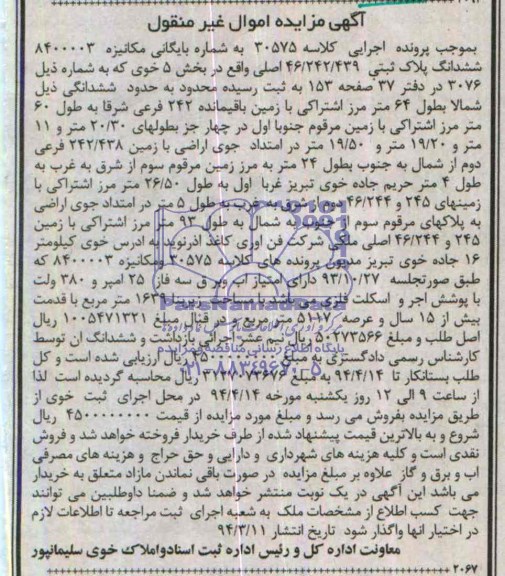 آگهی مزایده اموال غیر منقول
بموجب پرونده اجرایی کلاسه ۳۰۵۷۵ به شماره بایگانی مکانیزه ۸۴۰۰۰۰۳
ششدانگ پلاک ثبتی ۴۶/۲۴۲/۴۳۹ اصلی واقع در بخش ۵ خوی که به شماره ذیل
۳۰۷۶ در دفتر ۳۷ صفحه ۱۵۳ به ثبت رسیده محدود به حدود ششدانگی ذیل
شمالا بطول ۶۴ متر مرز اشتراکی با زمین باقیمانده ۲۴۲ فرعی شرقا به طول ۶۰
متر مرز اشتراکی با زمین مرقوم جنوبا اول در چهار جز بطولهای ۲۰/۳۰ متر و ۱۱
متر و ۱۹/۲۰ متر و ۱۹/۵۰ متر در امتداد جوی اراضی با زمین ۲۴۲/۴۳۸ فرعی
دوم از شمال به جنوب بطول ۲۴ متر به مرز زمین مرقوم سوم از شرق به غرب به
طول ۴ متر حریم جاده خوی تبریز غربا اول به طول ۲۶/۵۰ متر مرز اشتراکی با
زمینهای ۲۴۵ و ۴۶/۲۴۴ دوم از شرق به غرب به طول ۵ متر در امتداد جوی اراضی
به پلاکهای مرقوم سوم از جنوب به شمال به طول ۹۳ متر مرز اشتراکی با زمین
۲۴۵ و ۴۶/۲۴۴ اصلی ملکی شرکت فن آوری کاغذ آذرنوید به ادرس خوی کیلومتر
۱۶ جاده خوی تبریز مدیون پرونده های کلاسه ۳۰۵۷۵ ومکانیزه ۸۴۰۰۰۰۳ که
طبق صورتجلسه ۹۳/۱۰/۲۷ دارای امتیاز آب وبرق سه فاز ۲۵ امپر و ۳۸۰ ولت
با پوشش اجر و اسکلت فلزی می باشد با مساحت زیربنا ۱۶۳۹ متر مربع با قدمت
بیش از ۱۵ سال و عرصه ۵۱۱۷ متر مربع و در قبال مبلغ ۱۰۰۵۴۷۱۳۲۱ ریال
اصل طلب و مبلغ ۵۰۲۷۳۵۶۶ ریال نیم عشر اجرائی بازداشت و ششدانگ آن توسط
کارشناس رسمی دادگستری به مبلغ ۴۵۰۰۰۰۰۰۰۰ ریال ارزیابی شده است و کل
طلب بستانکار تا ۹۴/۴/۱۴ به مبلغ ریال محاسبه گردیده است لذا
از ساعت ۹ الی ۱۲ روز یکشنبه مورخه ۹۴/۴/۱۴ در محل اجرای ثبت خوی از
طریق مزایده بفروش می رسد و مبلغ مورد مزایده از قیمت ۴۵۰۰۰۰۰۰۰۰ ریال
شروع و به بالاترین قیمت پیشنهاد شده از طرف خریدار فروخته خواهد شد و فروش
نقدی است و کلیه هزینه های شهرداری و دارایی و حق حراج و هزینه های مصرفی
اب و برق و گاز علاوه بر مبلغ مزایده در صورت باقی نماندن مازاد متعلق به خریدار
می باشد این آگهی در یک نوبت منتشر خواهد شد و ضمنا داوطلبین می توانند
جهت کسب اطلاع از مشخصات ملک به شعبه اجرای ثبت مراجعه تا اطلاعات لازم
در اختیار انها واگذار شود تاریخ انتشار ۹۴/۳/۱۱
معاونت اداره کل و رئیس اداره ثبت اسناد واملاک خوی سلیمانپور
۲۰۶۷
ParsNamadData
پایگاه اطلاع رسانی مناقصه و مزایده
۰۲۱-۸۸۳۴۹۶۷۰-۵